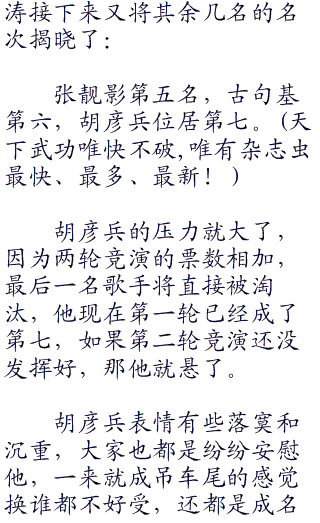 涛接下来又将其余几名的名
次揭晓了：
张靓影第五名，古句基
第六，胡彦兵位居第七。(天
下武功唯快不破,唯有杂志虫
最快、最多、最新！ )
胡彦兵的压力就大了，
因为两轮竞演的票数相加，
最后一名歌手将直接被淘
汰，他现在第一轮已经成了
第七，如果第二轮竞演还没
发挥好，那他就悬了。
胡彦兵表情有些落寞和
沉重，大家也都是纷纷安慰
他，一来就成吊车尾的感觉
换谁都不好受，还都是成名